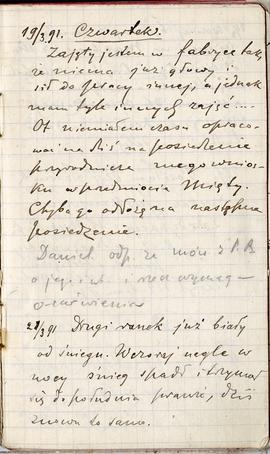 19/3.91. Czwartek.
Zajęty jestem w fabryce tak,
że niema już głowy i
sił do pracy innej, a jednak
mam tyle innych zajęć....
Ot niemiałem czasu opraco-
wać na dziś na posiedzenie
przyrodnicze mego wnios-
ku w przedmiocie Mięty.
Chyba go odłożę na następne
posiedzenie.
Daniel. odp. że mów z
o jego i rzecz wymaga
omówienia
28/3 91 Drugi ranek już biały
od śniegu. Wczoraj nagle w
nocy śnieg spadł i trzymał
się do południa prawie, dziś
znowu to samo.